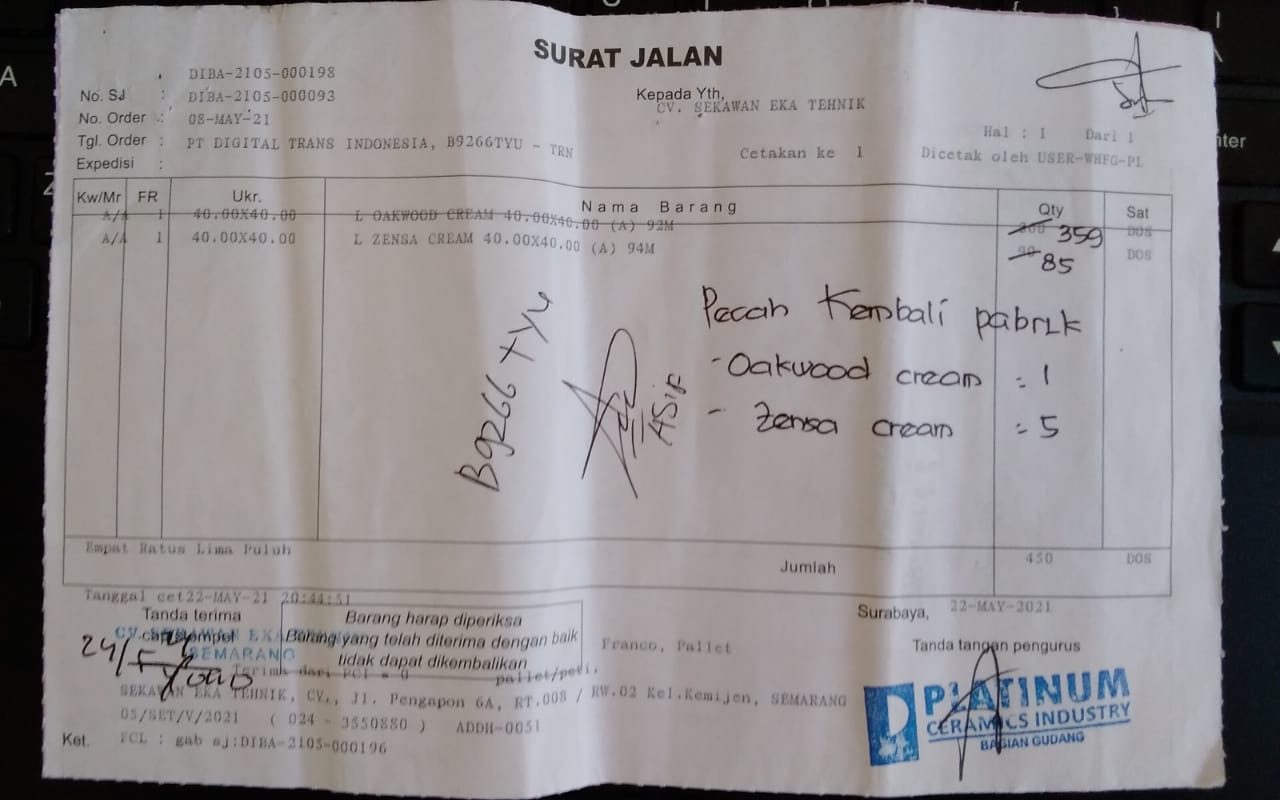 SURAT JALAN
DIBA-2105-000198
No. SJ : DIBA-2105-000093
No. Order : 08-MAY-21
Tgl. Order : PT DIGITAL TRANS INDONESIA, B9266TYU - TRN
Expedisi :
Kepada Yth,
CV. SEKAWAN EKA TEHNIK
Hal : 1 Dari 1
Cetakan ke 1 Dicetak oleh USER-WHFG-PL
Kw/Mr FR Ukr. Nama Barang Qty Sat
A/A 1 40.00X40.00 L OAKWOOD CREAM 40.00X40.00 (A) 92M 359 DOS
A/A 1 40.00X40.00 L ZENSA CREAM 40.00X40.00 (A) 94M 85 DOS
Pecah Kembali pabrik
- Oakwood cream = 1
- Zensa cream = 5
B9266 TYU
ASIF
Empat Ratus Lima Puluh
Jumlah 450 DOS
Tanggal cet22-MAY-21 20:44:51
Surabaya, 22-MAY-2021
Tanda terima
cap kompel
CV. SEKAWAN EKA
SEMARANG
24/5
Barang harap diperiksa
Barang yang telah diterima dengan baik
tidak dapat dikembalikan
Franco, Pallet
Tanda tangan pengurus
Terima dari PCI = 0 pallet/peti.
SEKAWAN EKA TEHNIK, CV., Jl. Pengapon 6A, RT.008 / RW.02 Kel.Kemijen, SEMARANG
05/SET/V/2021 ( 024 - 3550880 ) ADDH-0051
Ket. FCL : gab sj:DIBA-2105-000196
PLATINUM
CERAMICS INDUSTRY
BAGIAN GUDANG